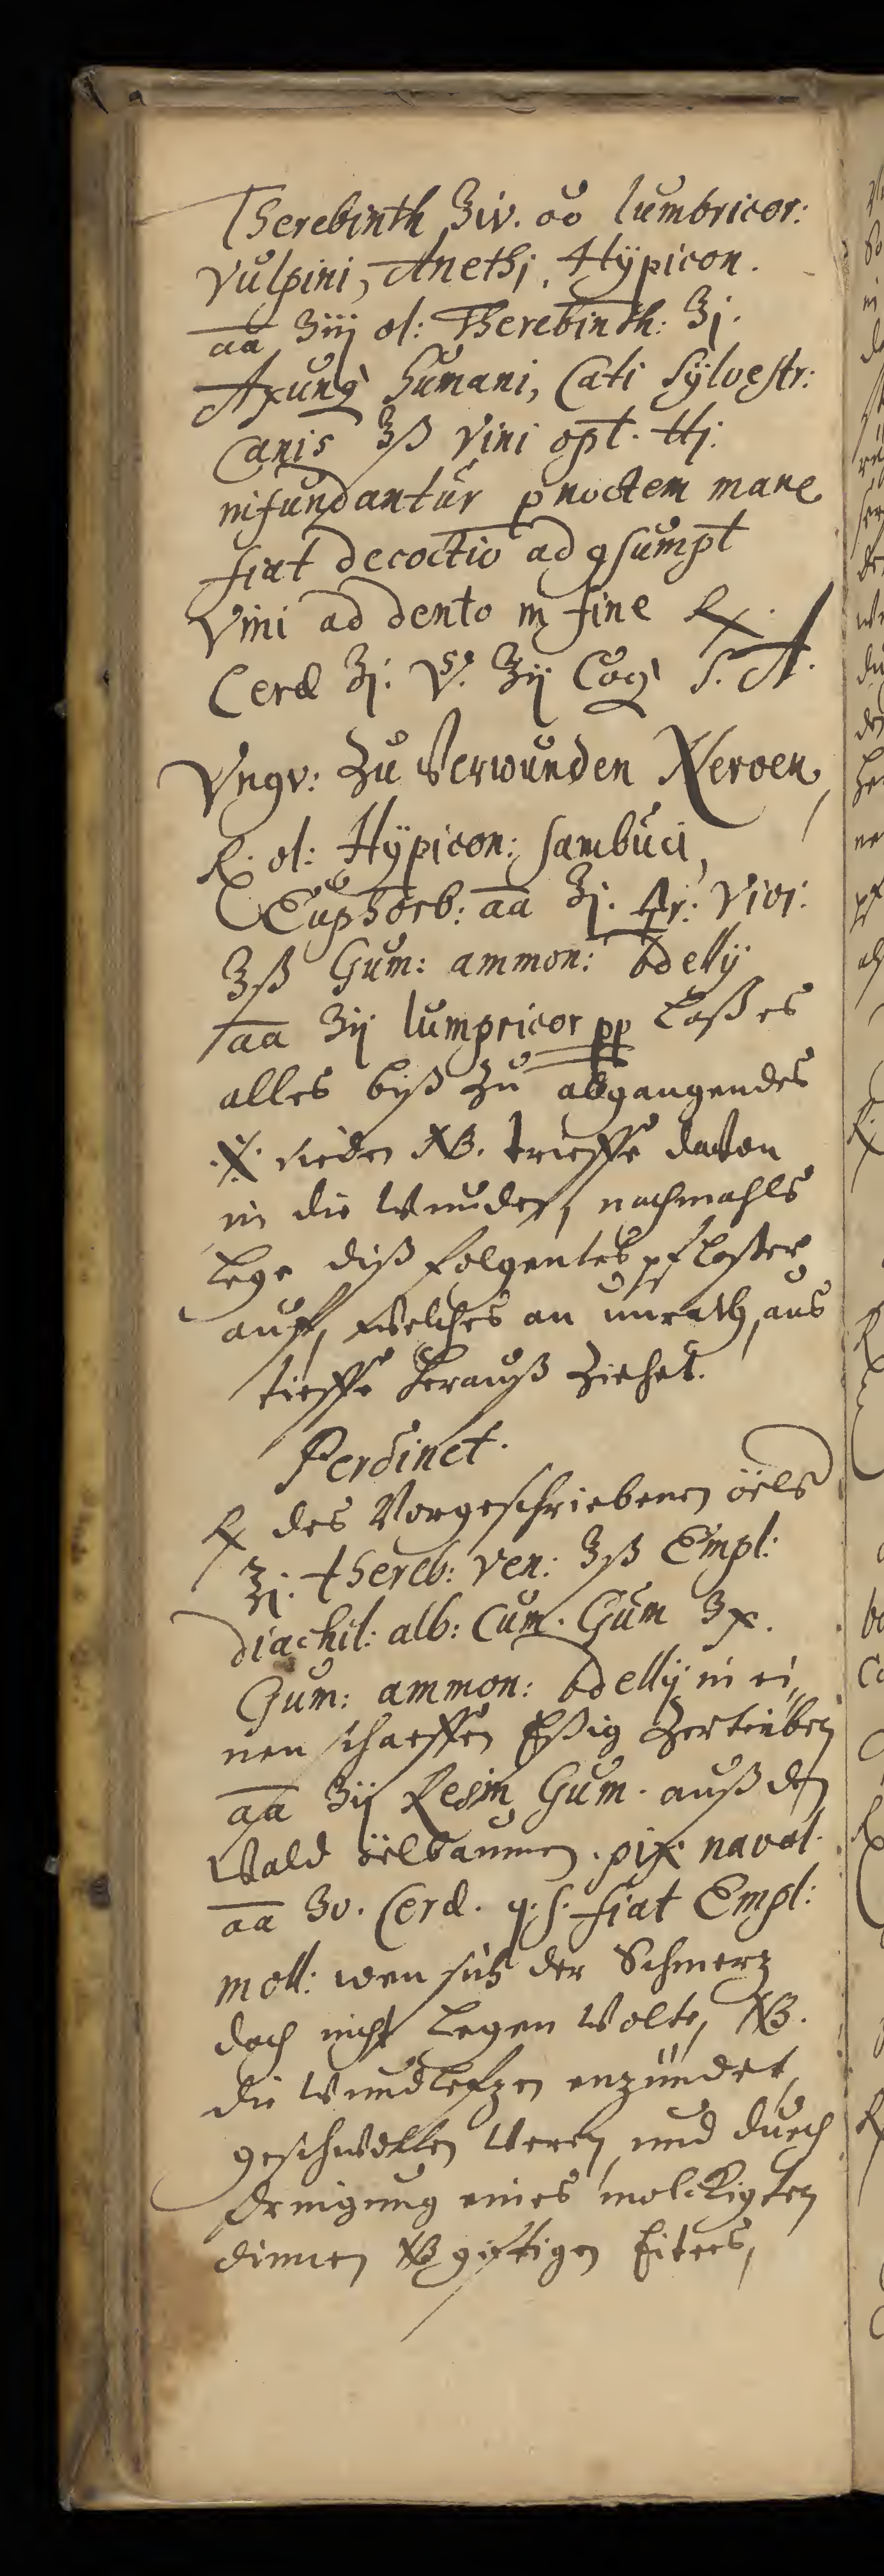 Therebinth ʒiv. oo lumbricor:
Vulpini, Anethi, Hÿpicon.
aa ʒiij ol: Therebinth: ʒj.
Axung humani, Cati sylvestr:
Canis ʒß Vini opt. ℔j.
infundantur p noctem mane
fiat decoctio ad 9sumpt
Vini ad dento in fine ℞.
Ceræ ʒj. ʒij Coq S. A.
Vngv: zu Verwunden Nerven
℞. ol: Hÿpicon: sambuci,
Euphorb: aa ʒj. Vivi:
ʒß Gum: ammon: bdellij
aa ʒij lumpricor pp laß es
alles biß zu abgangendes
sieden NB. trieffe davon
in die Wunden, nachmahls
lege diß folgentes pflaster
auff, welches an unrath, aus
tieffe herauß ziehet.
Perdinet.
℞ des Vorgeschriebenen öels
ʒj. thereb: ven: ʒß Empl:
diachil: alb: Cum. Gum ʒx.
Gum: ammon: bdellij in ei„
nen scharffen Eßig zertrieben
aa ʒij Resin Gum. auß den
Wald öelbaumen. pix naval.
aa ʒv. Ceræ. q. s. fiat Empl:
moll: wen sich der Schmerz
doch nicht legen Wolte, NB.
die Wundlefzen enzündet,
geschwollen Weren, und durch
eines molckigten
dinnen NB giftigen Eiters,